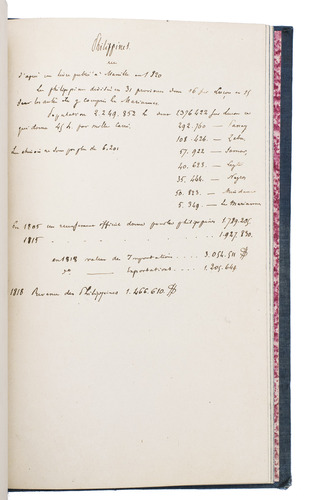 Philippines
d'après un livre publié à Manille en 1820
Les philippines divisées en 31 provinces dont 16 pour Luçon et 15
pour les autres îles y compris les Mariannes
Population 2.249.852 h. dont 1376422 sur Luçon
que donne 45 h. par mille carré.
292.760 — Panay
108.426 — Zebu
57.922 — Samar
40.623 — Leyte
35.444 — Negros
50.823 — Mindanao
5.389 — les Mariannes
en 1805 un recensement officiel donne pour les philippines 1.789.205
1815 . . . . 1.927.830.
en 1818 valeur des Importations . . . . 3.054.511 $
do — Exportations . . . . 1.205.649
1818 Revenu des Philippines 1.466.610. $